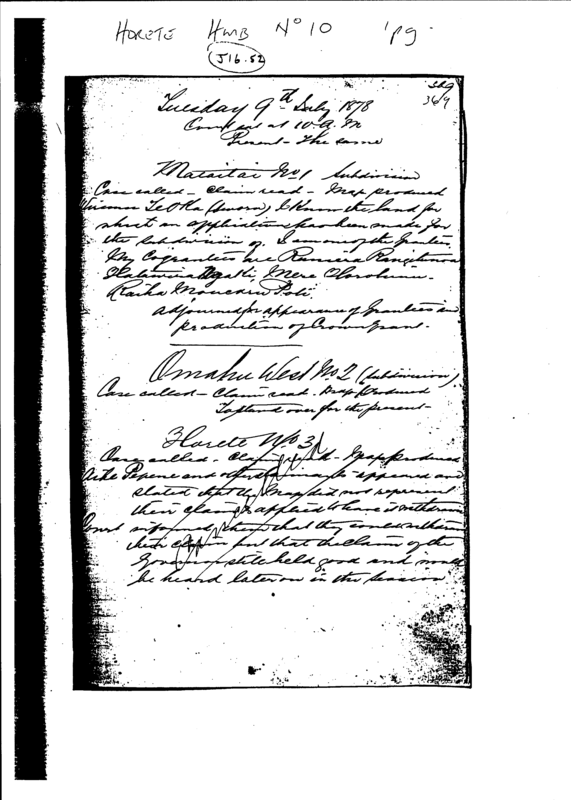 HORETE HWB No 10 pg
J16.52
369
Tuesday 9th July 1878
Court sat at 10 A.M
Present - The same
Mataitai No 1 Subdivision
Case called - Claim read - Map produced
Te Oka (sworn) I know the land for
which an application has been made for
the subdivision of. I am one of the Grantees
My Cograntees are
Mere
Raiha
adjourned for appearance of Grantees and
production of Crown Grant.
Omahu West No 2 (Subdivision)
Case called - Claim read - Map produced
to stand over for the present -
Horete No 3
Case called - Claim read - Map produced
Pepene and others appeared and
stated that the Map did not represent
their claim & applied to have it withdrawn
Court informed them that they could withdraw
their claim but that the claim of the
Governor still held good and would
be heard later on in the session